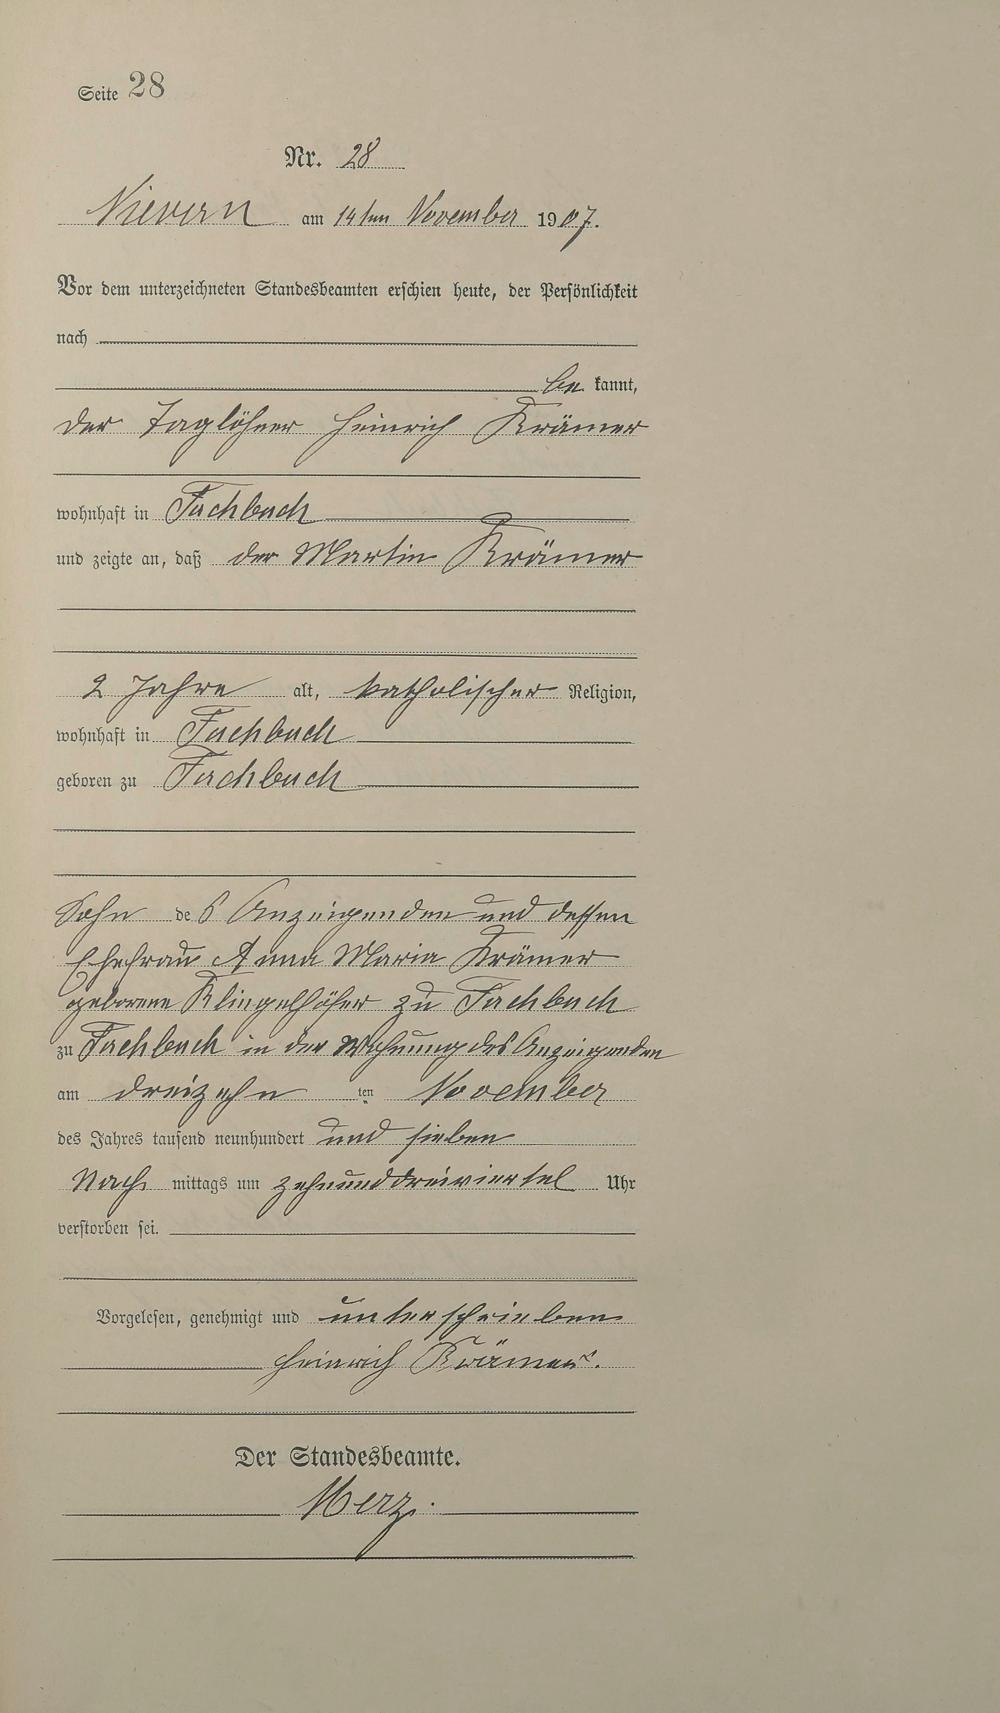 Seite 28
Nr. 28
Nievern am 14ten November 1907.
Vor dem unterzeichneten Standesbeamten erschien heute, der Persönlichkeit
nach
be kannt,
der Taglöhner Heinrich Krämer
wohnhaft in Fachbach
und zeigte an, daß der Martin Krämer
2 Jahre alt, katholischer Religion,
wohnhaft in Fachbach
geboren zu Fachbach
Sohn des Anzeigenden und dessen
Ehefrau Anna Maria Krämer
geborene Klingelhöfer zu Fachbach
zu Fachbach in der Wohnung des Anzeigenden
am dreizehn ten November
des Jahres tausend neunhundert und sieben
Nach mittags um zehnunddreiviertel Uhr
verstorben sei.
Vorgelesen, genehmigt und unterschrieben
Heinrich Krämer.
Der Standesbeamte.
Merz.